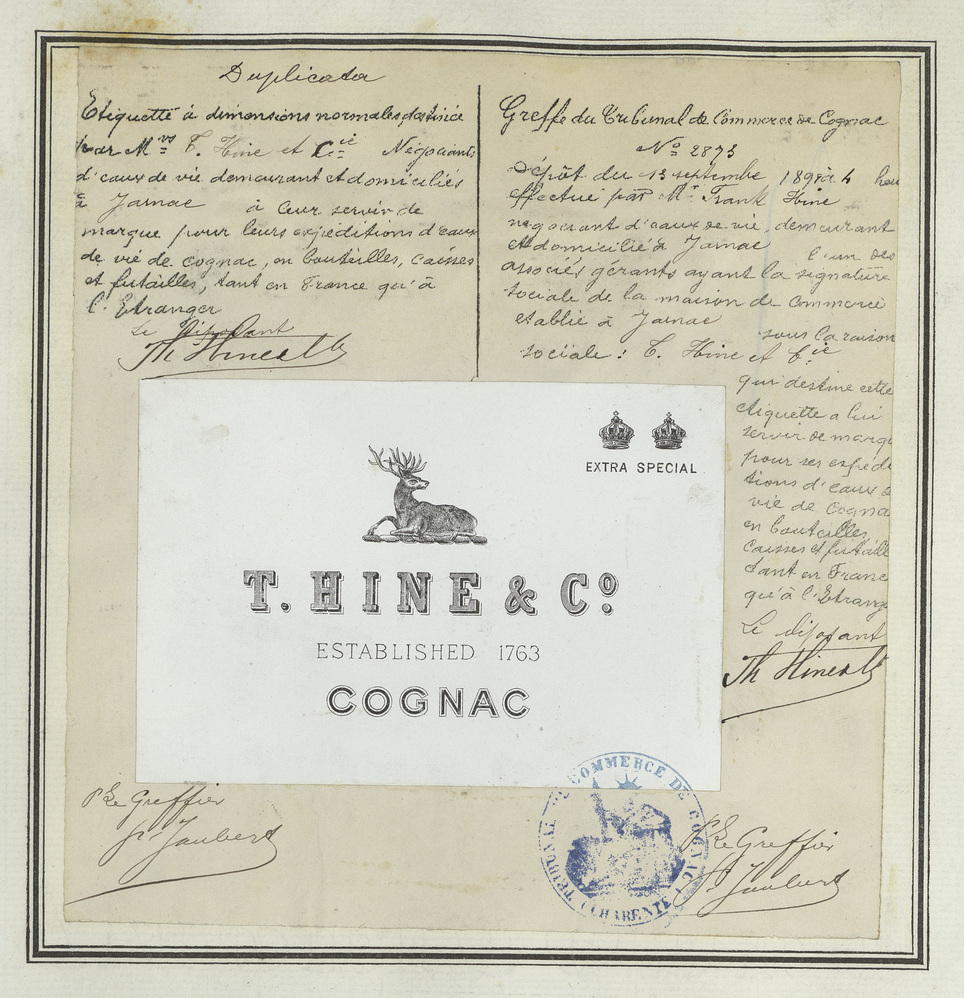 Duplicata
Etiquette à dimensions normales destinée
par Mrs T. Hine et Cie Négociants
d'eaux de vie demeurant et domiciliés
à Jarnac à leur servir de
marque pour leurs expéditions d'eaux
de vie de cognac, en bouteilles, caisses
et futailles, tant en France qu'à
l'Etranger
Le Déposant
Th Hine & Co
Greffe du Tribunal de Commerce de Cognac
No 2873
Dépôt du 13 septembre à 4 heu
effectué par Mr. Frank Hine
négociant d'eaux de vie, demeurant
et domicilié à Jarnac l'un des
associés gérants ayant la signature
sociale de la maison de Commerce
etablie à Jarnac sous la raison
sociale : T. Hine et Cie
qui destine cette
étiquette a lui
servir de marqu
pour ses expédi
tions d'eaux de
vie de Cogna
en bouteilles
caisses et futaille
tant en Franc
qu'à l'Etrang
Le déposant
Th Hine & Co
EXTRA SPECIAL
T. HINE & Co.
ESTABLISHED 1763
COGNAC
P Le Greffier
Jaubert
TRIBUNAL DE COMMERCE DE COGNAC
(CHARENTE)
P Le Greffier
Jaubert